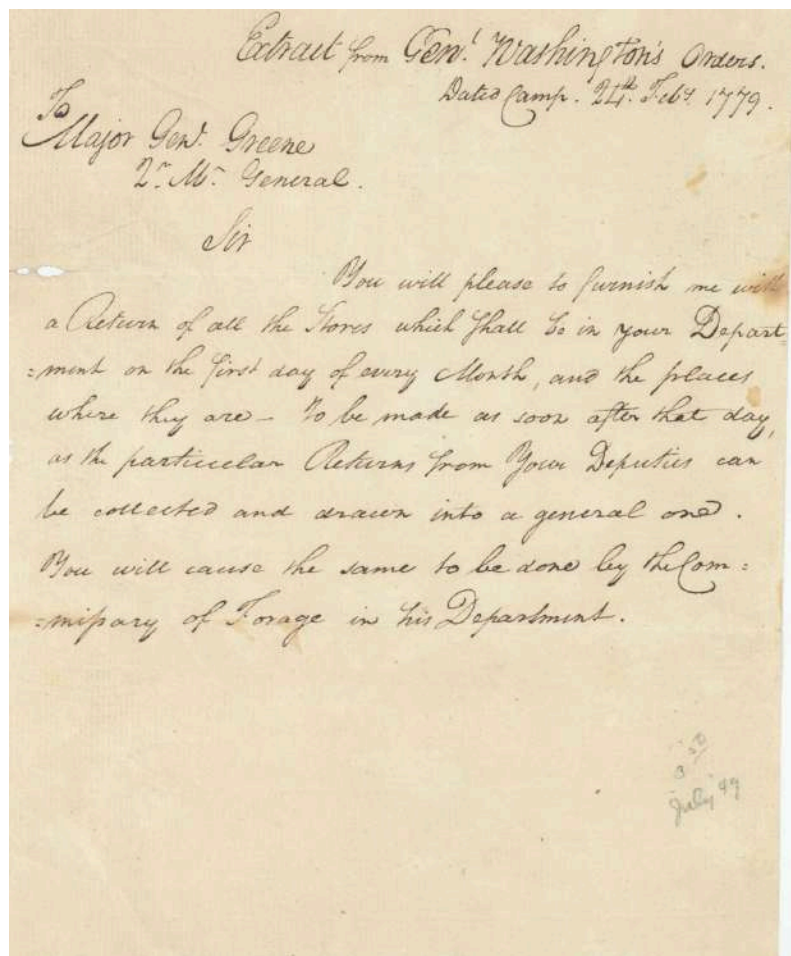 Extract from Gen.l Washington's Orders.
Dated Camp. 24th. Feby. 1779.
To
Major Genl. Greene
Qr. Mr. General.
Sir
You will please to furnish me with
a Return of all the Stores which shall be in your Depart=
=ment on the first day of every Month, and the places
where they are – To be made as soon after that day,
as the particular Returns from Your Deputies can
be collected and drawn into a general one.
You will cause the same to be done by the Com=
=missary of Forage in his Department.
July '99